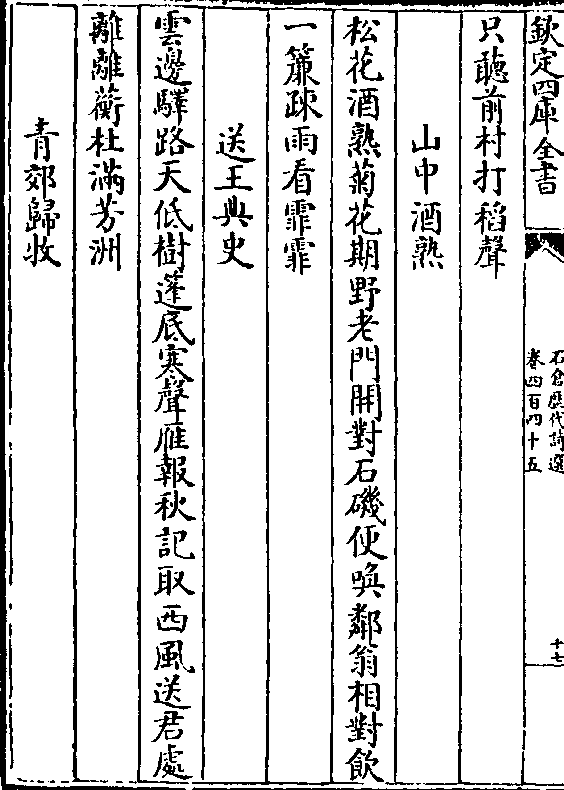 欽定四庫全書
石倉歷代詩選
卷四百四十五
十七
只聽前村打稻聲
山中酒熟
松花酒熟菊花期野老門開對石磯便喚鄰翁相對飲
一簾疎雨看霏霏
送王典史
雲邊驛路天低樹蓬底寒聲雁報秋記取西風送君處
離離蘅杜滿芳洲
青郊歸牧